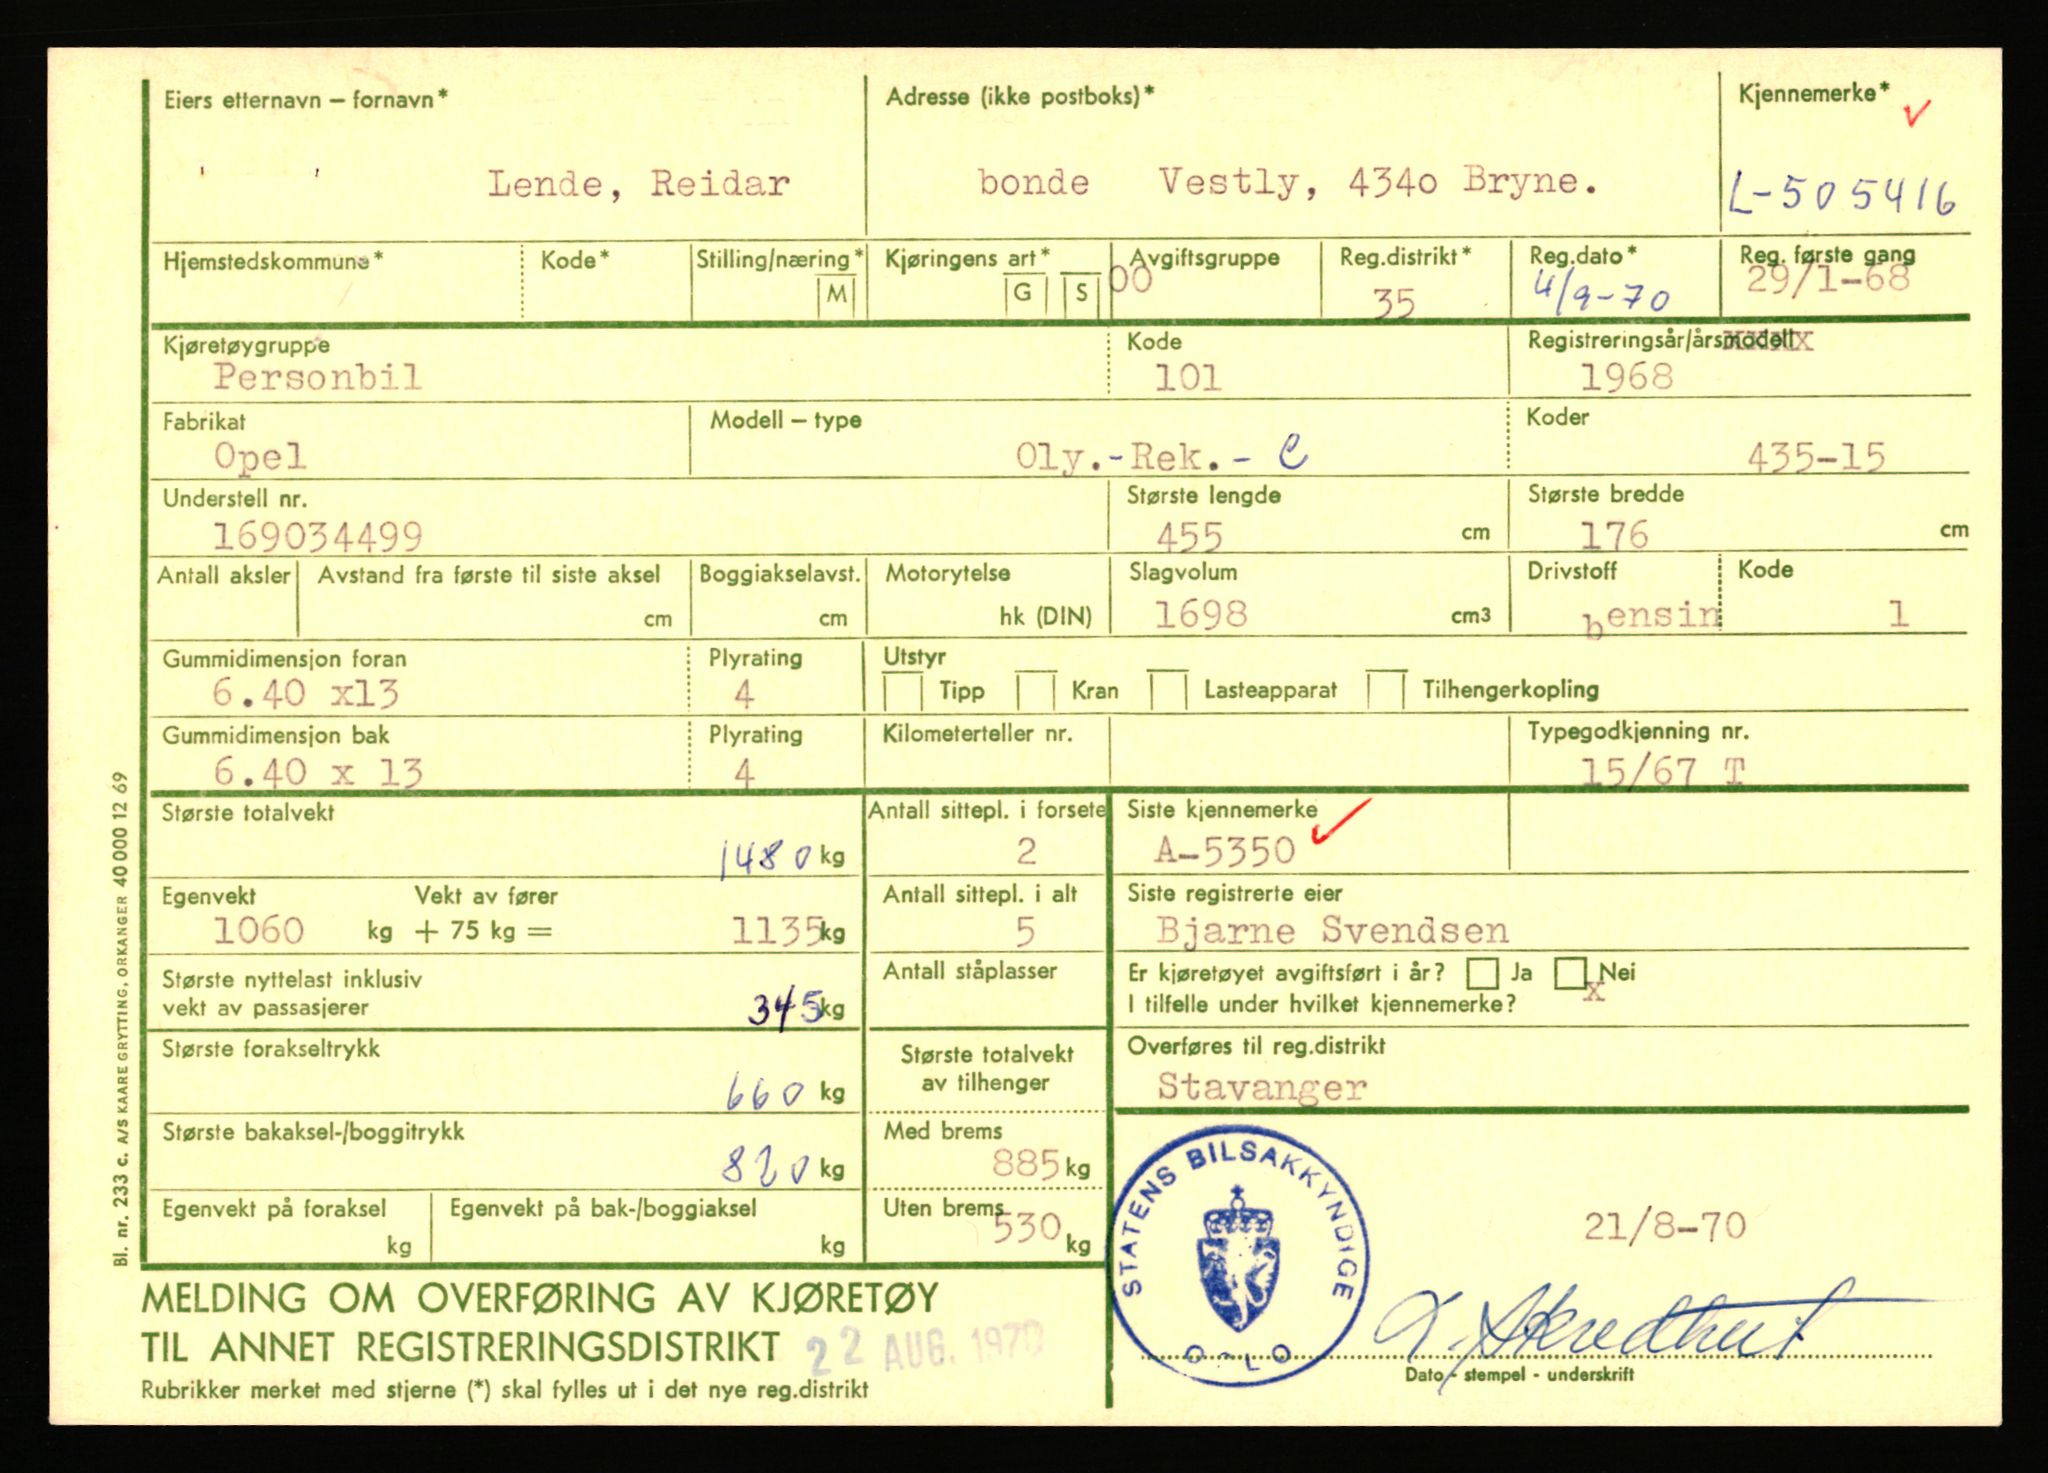 Eiers etternavn – fornavn* Adresse (ikke postboks)* Kjennemerke*
Lende, Reidar bonde Vestly, 4340 Bryne. L-505416
Hjemstedskommune* Kode* Stilling/næring* Kjøringens art* Avgiftsgruppe Reg.distrikt* Reg.dato* Reg. første gang
M G S 00 35 4/9-70 29/1-68
Kjøretøygruppe Kode Registreringsår/årsmodell
Personbil 101 1968
Fabrikat Modell – type Koder
Opel Oly.-Rek.- C 435-15
Understell nr. Største lengde Største bredde
169034499 455 cm 176 cm
Antall aksler Avstand fra første til siste aksel Boggiakselavst. Motorytelse Slagvolum Drivstoff Kode
cm cm hk (DIN) 1698 cm3 bensin 1
Gummidimensjon foran Plyrating Utstyr
6.40 x13 4 Tipp Kran Lasteapparat Tilhengerkopling
Gummidimensjon bak Plyrating Kilometerteller nr. Typegodkjenning nr.
6.40 x 13 4 15/67 T
Største totalvekt Antall sittepl. i forsete Siste kjennemerke
1480 kg 2 A-5350
Egenvekt Vekt av fører Antall sittepl. i alt Siste registrerte eier
1060 kg + 75 kg = 1135 kg 5 Bjarne Svendsen
Største nyttelast inklusiv Antall ståplasser Er kjøretøyet avgiftsført i år? Ja Nei
vekt av passasjerer 345 kg I tilfelle under hvilket kjennemerke? x
Største forakseltrykk Største totalvekt Overføres til reg.distrikt
660 kg av tilhenger Stavanger
Største bakaksel-/boggitrykk Med brems
820 kg 885 kg
Egenvekt på foraksel Egenvekt på bak-/boggiaksel Uten brems
kg kg 530 kg
STATENS BILSAKKYNDIGE
21/8-70
MELDING OM OVERFØRING AV KJØRETØY
TIL ANNET REGISTRERINGSDISTRIKT 22 AUG. 1970
Dato - stempel - underskrift
Rubrikker merket med stjerne (*) skal fylles ut i det nye reg.distrikt
Bl. nr. 233 c. A/S KAARE GRYTTING, ORKANGER 40 000 12 69